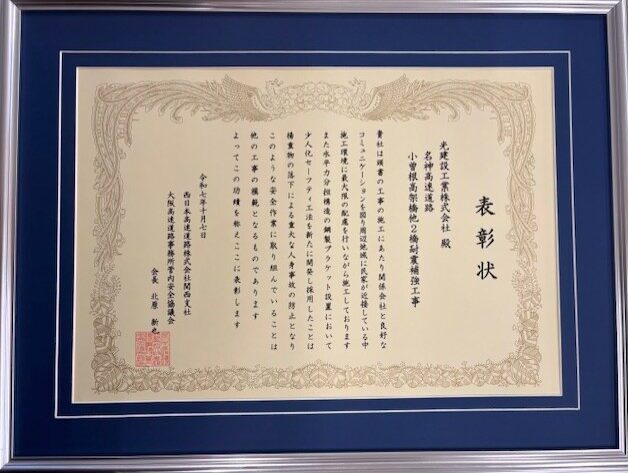 表彰状
光建設工業株式会社 殿
名神高速道路
小曽根高架橋他2橋耐震補強工事
貴社は頭書の工事の施工にあたり関係会社と良好な
コミュニケーションを図り周辺地域に民家が近接している中
施工環境に最大限の配慮を行いながら施工しております
また水平力分担構造の鋼製ブラケット設置において
少人化セーフティ工法を新たに開発し採用したことは
揚重物の落下による重大な人身事故の防止となり
このような安全作業に取り組んでいることは
他の工事の模範となるものであります
よってこの功績を称えここに表彰します
令和七年十月七日
西日本高速道路株式会社関西支社
大阪高速道路事務所管内安全協議会
会長 北原 新也